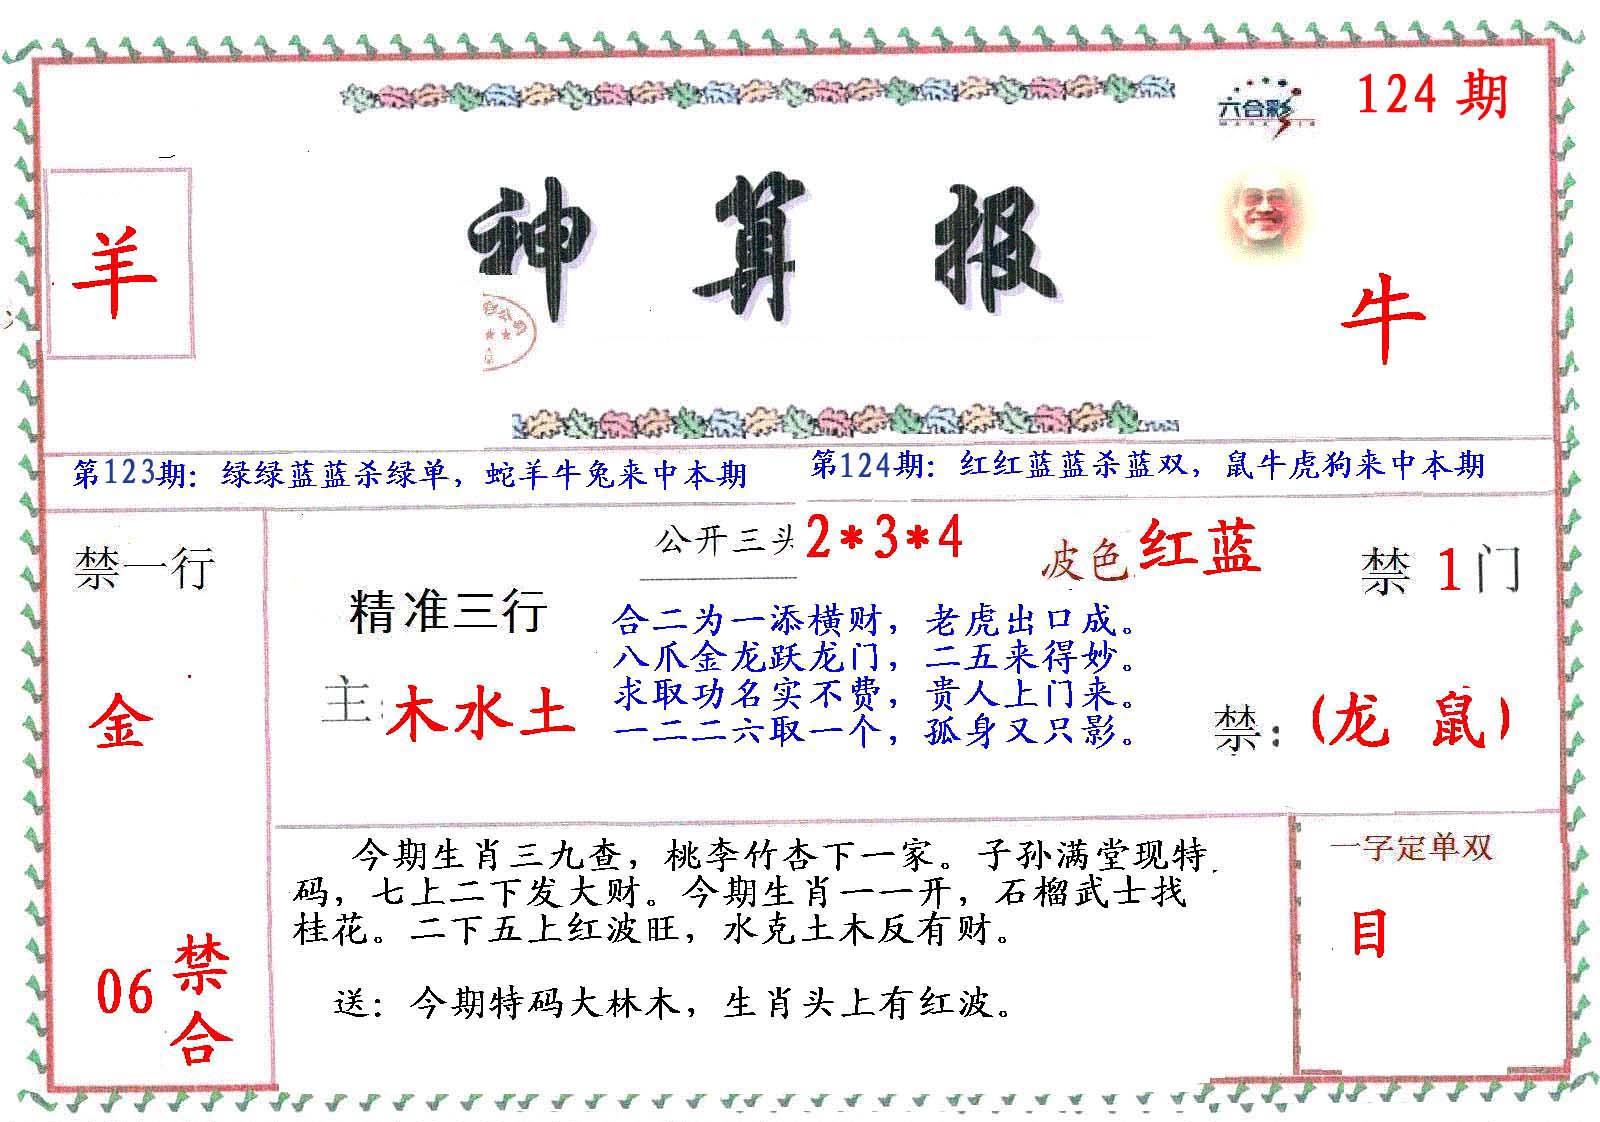 六合彩
124期
羊
神算报
牛
第123期：绿绿蓝蓝杀绿单，蛇羊牛兔来中本期
第124期：红红蓝蓝杀蓝双，鼠牛虎狗来中本期
禁一行
金
06
禁
合
公开三头 2*3*4
波色 红蓝
禁 1门
精准三行
主：木水土
合二为一添横财，老虎出口成。
八爪金龙跃龙门，二五来得妙。
求取功名实不费，贵人上门来。
一二二六取一个，孤身又只影。
禁：(龙 鼠)
今期生肖三九查，桃李竹杏下一家。子孙满堂现特
码，七上二下发大财。今期生肖一一开，石榴武士找
桂花。二下五上红波旺，水克土木反有财。
送：今期特码大林木，生肖头上有红波。
一字定单双
目